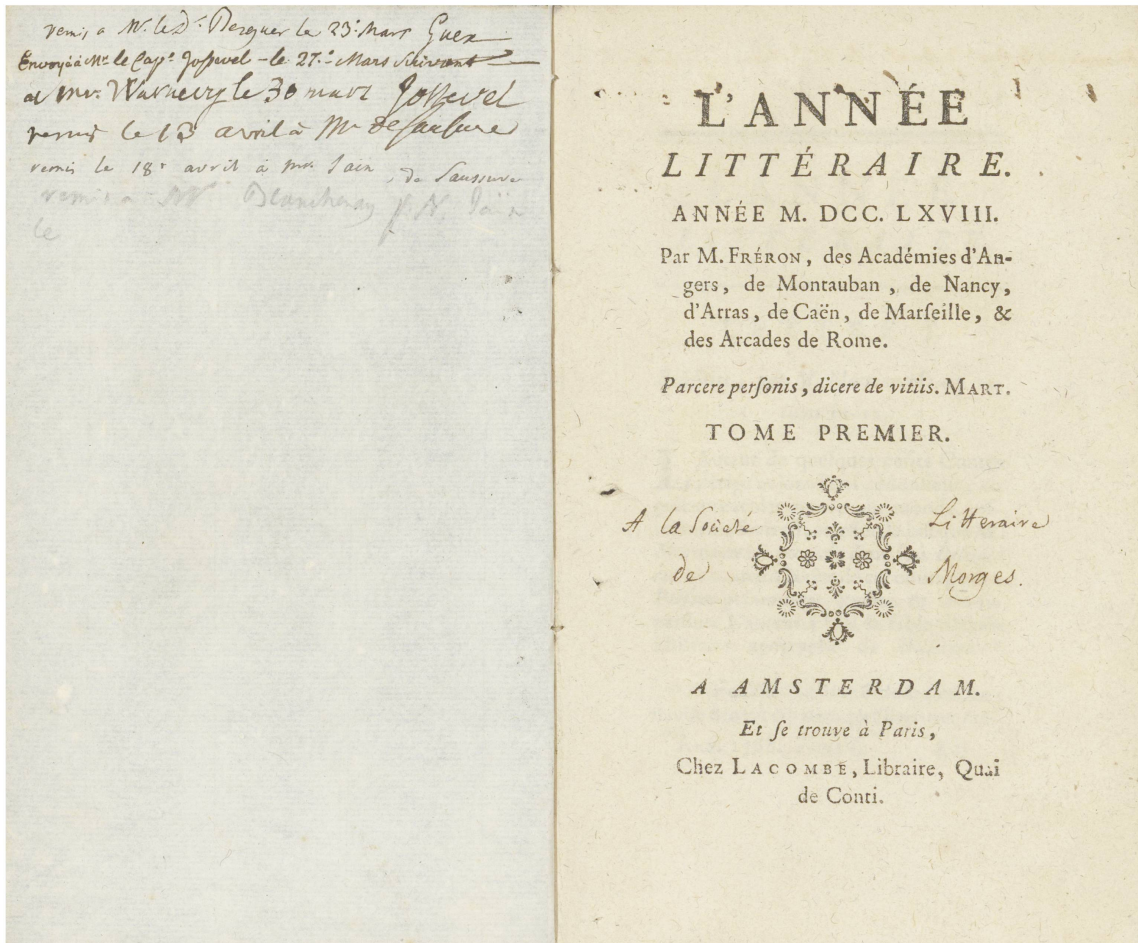 remis a Mr. le Dr. Berguer le 23e. Mars Guex
Envoyé à Mr. le Capne. Jossevel - le 27e. Mars suivant
a Mr. Warnery le 30 mars Jossevel
remis le 13 avril à Mr de Saussure
remis le 18e avril à mr. Jain, de Saussure
remis a Mr Blanchenay J. N. Jaïn
le
L'ANNÉE
LITTÉRAIRE.
ANNÉE M. DCC. LXVIII.
Par M. FRÉRON, des Académies d'An-
gers, de Montauban, de Nancy,
d'Arras, de Caën, de Marſeille, &
des Arcades de Rome.
Parcere perſonis, dicere de vitiis. MART.
TOME PREMIER.
A la Société Litteraire
de Morges.
A AMSTERDAM.
Et ſe trouve à Paris,
Chez LACOMBE, Libraire, Quai
de Conti.